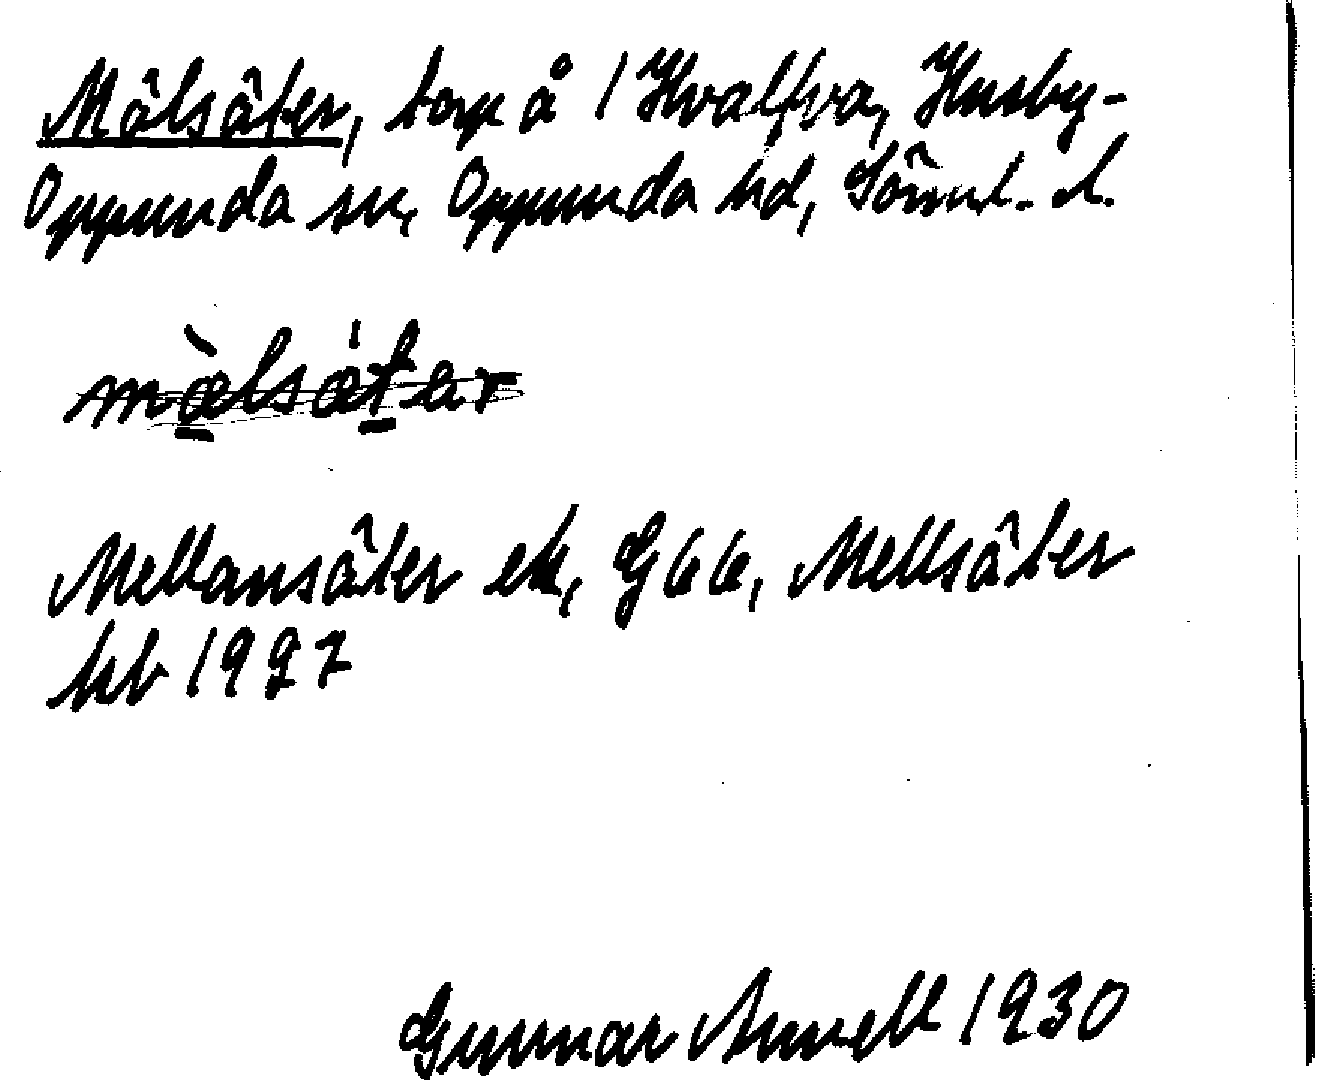 Mälsäter, torp å 1 Hvalfva, Husby-
Oppunda sn, Oppunda hd, Sörml. l.
màlsǻter
Mellansäter ek, G66, Mellsäter
kb 1927
Gunnar Arwell 1930